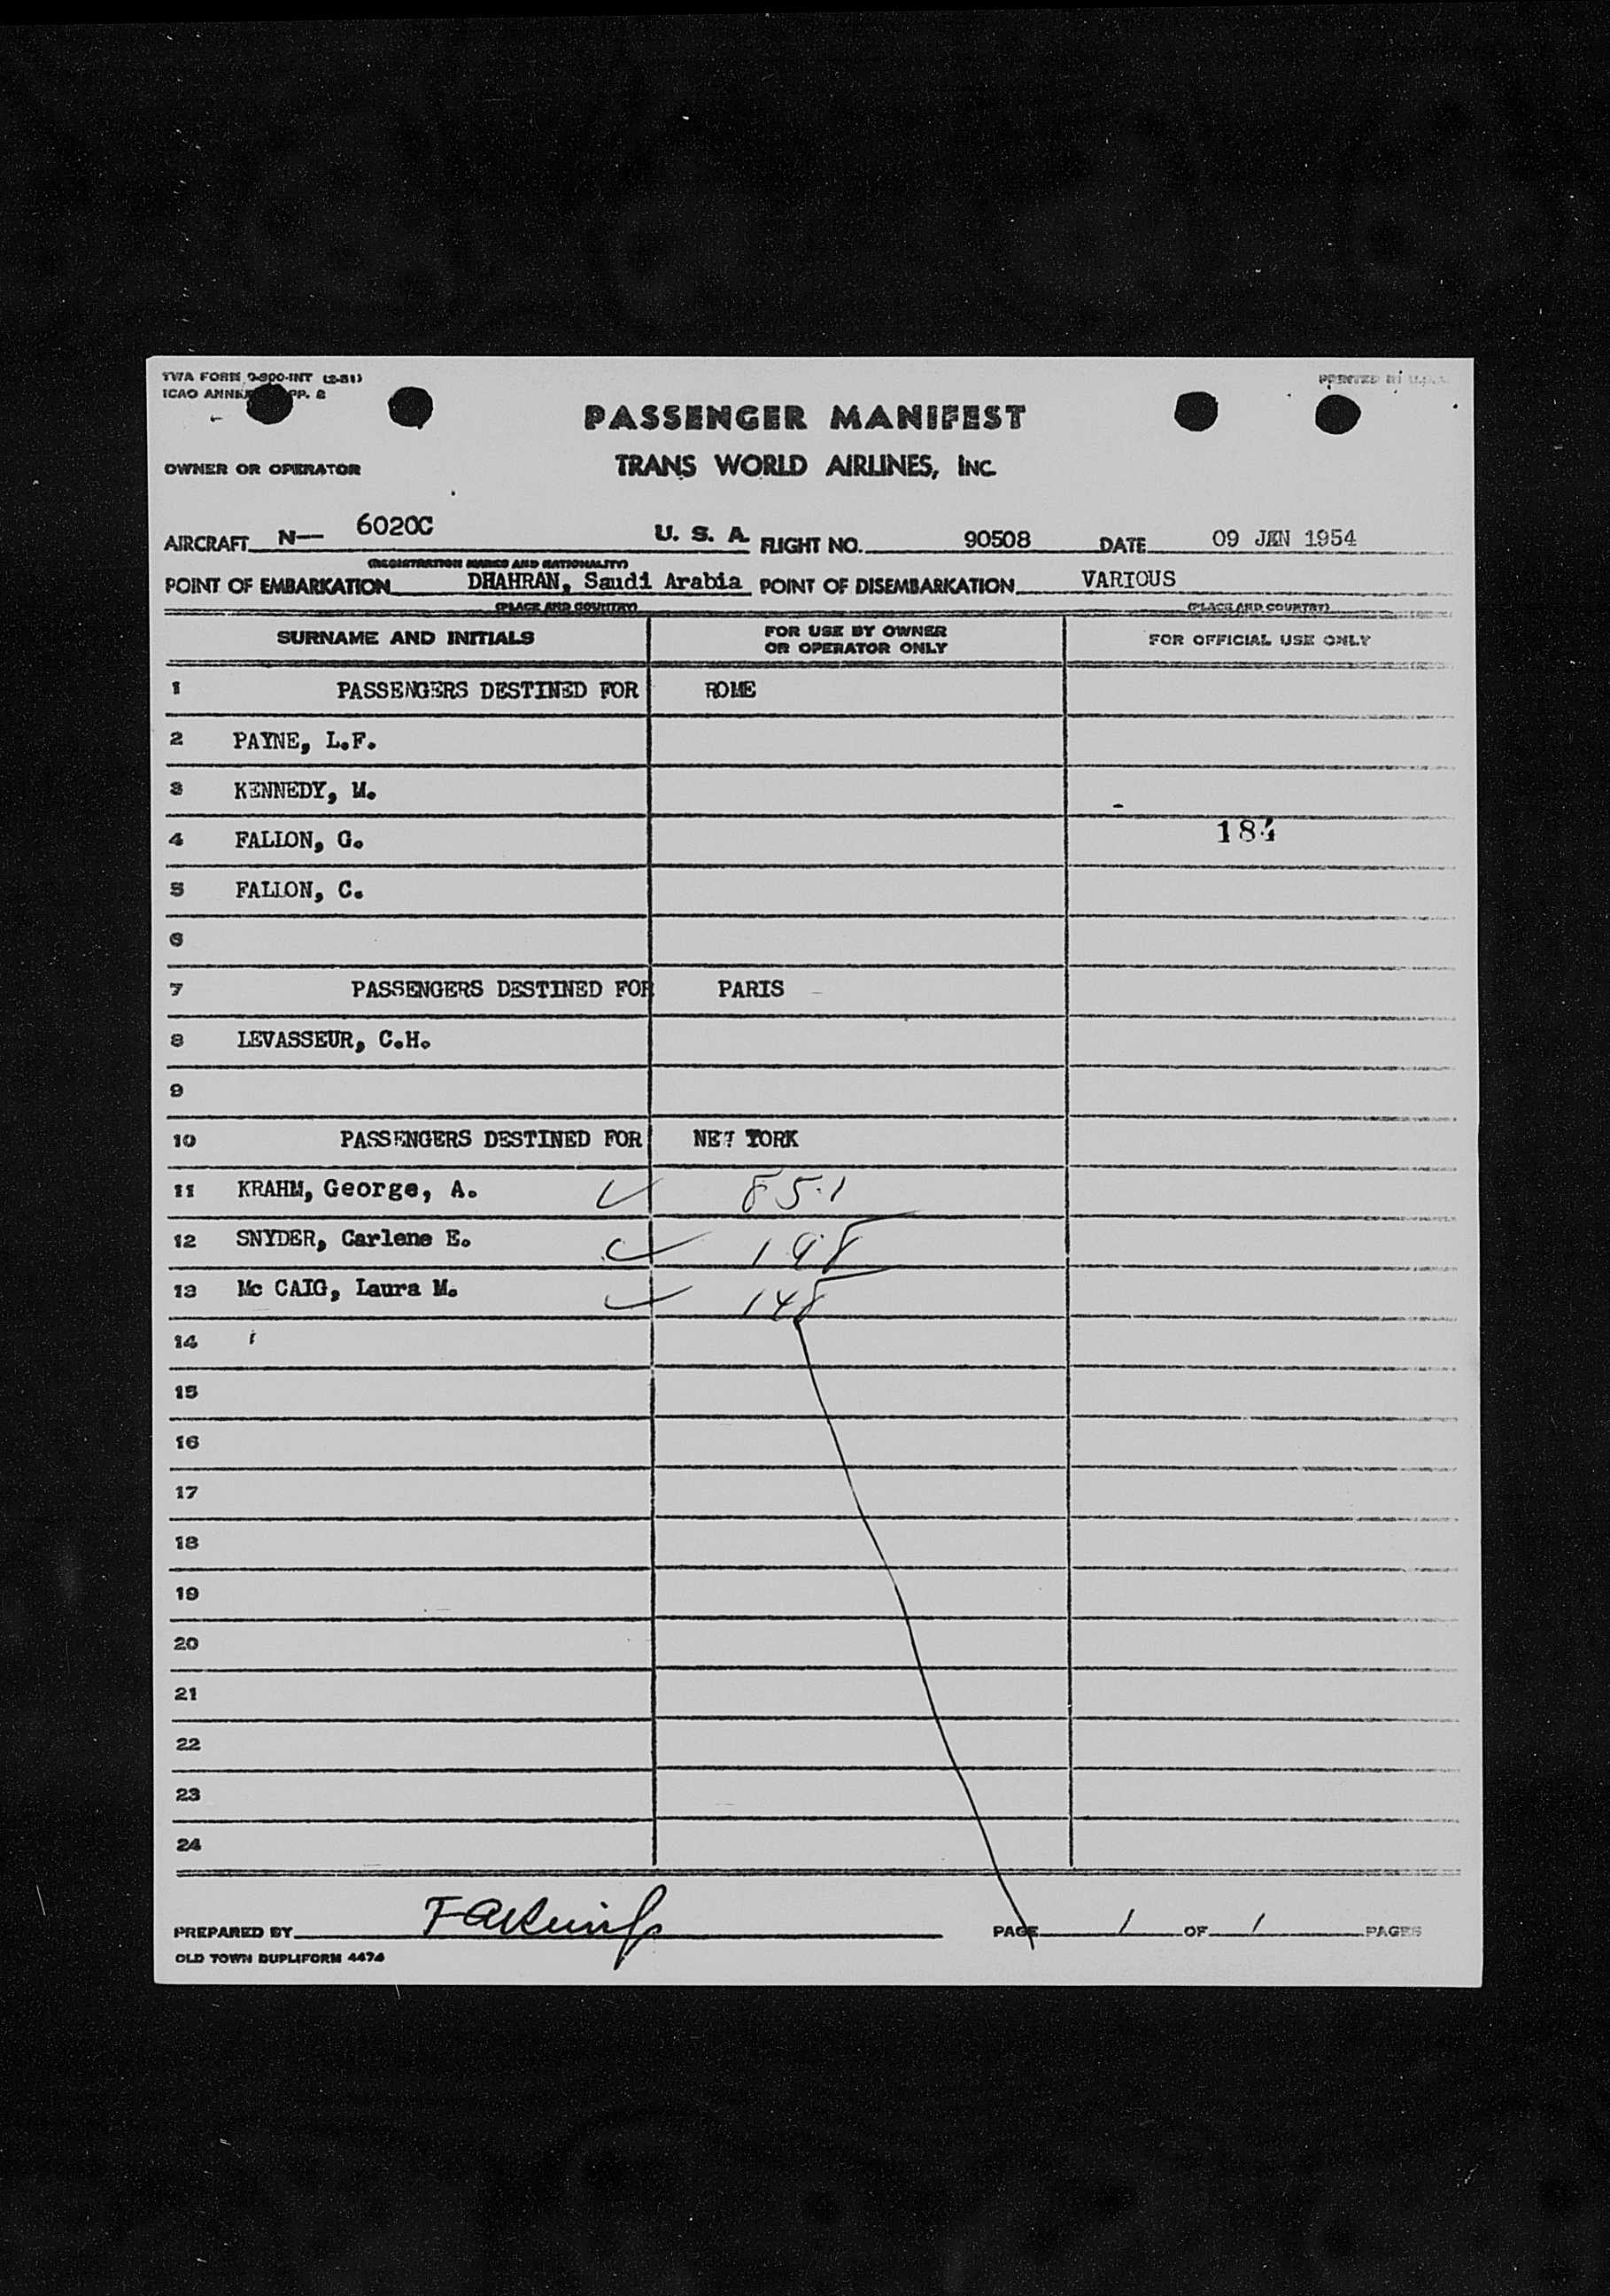 TWA FORM 0-900-INT (2-51)
PRINTED IN U.S.A.
ICAO ANNEX PP. 2
PASSENGER MANIFEST
OWNER OR OPERATOR
TRANS WORLD AIRLINES, INC
AIRCRAFT N— 6020C U. S. A. FLIGHT NO. 90508 DATE 09 JAN 1954
(REGISTRATION MARKS AND NATIONALITY)
POINT OF EMBARKATION DHAHRAN, Saudi Arabia POINT OF DISEMBARKATION VARIOUS
(PLACE AND COUNTRY) (PLACE AND COUNTRY)
SURNAME AND INITIALS FOR USE BY OWNER OR OPERATOR ONLY FOR OFFICIAL USE ONLY
1 PASSENGERS DESTINED FOR ROME
2 PAYNE, L.F.
3 KENNEDY, M.
4 FALLON, G. 184
5 FALLON, C.
6
7 PASSENGERS DESTINED FOR PARIS
8 LEVASSEUR, C.H.
9
10 PASSENGERS DESTINED FOR NEW YORK
11 KRAHM, George, A. ✓ 851
12 SNYDER, Carlene E. ✓ 198
13 Mc CAIG, Laura M. ✓ 148
14
15
16
17
18
19
20
21
22
23
24
PREPARED BY PAGE 1 OF 1 PAGES
OLD TOWN DUPLIFORM 4474